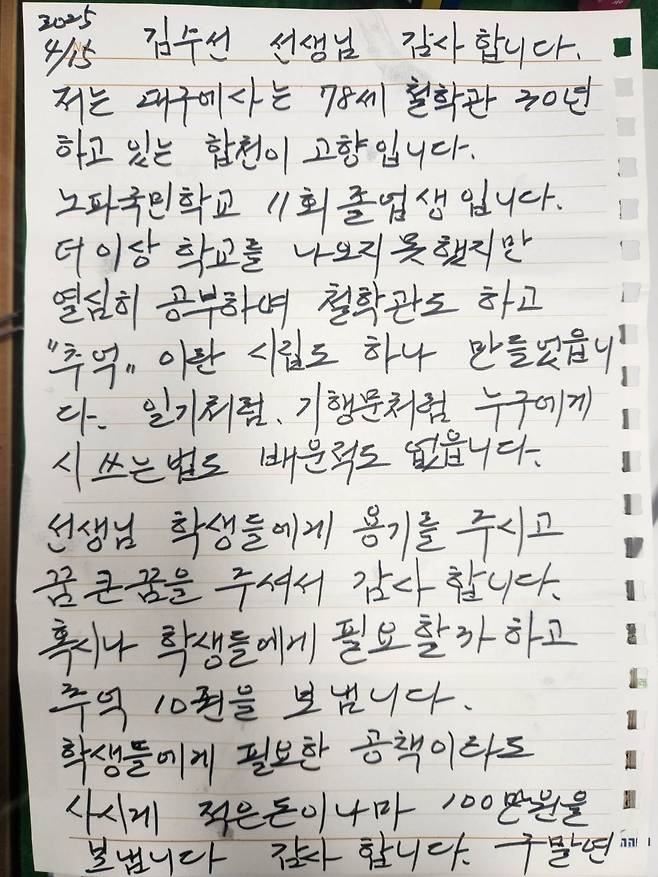 2025
4/15
김수선 선생님 감사합니다.
저는 대구에사는 78세 철학관 30년
하고 있는 합천이 고향입니다.
노파국민학교 11회 졸업생입니다.
더이상 학교를 나오지못했지만
열심히 공부하며 철학관도 하고
"추억" 이란 시집도 하나 만들었읍니
다. 일기처럼, 기행문처럼 누구에게
시쓰는법도 배운적도 없읍니다.
선생님 학생들에게 용기를 주시고
꿈 큰꿈을 주셔서 감사합니다.
혹시나 학생들에게 필요할까하고
추억 10편을 보냅니다.
학생들에게 필요한 공책이라도
사시게 적은돈이나마 100만원을
보냅니다 감사합니다. 구말연